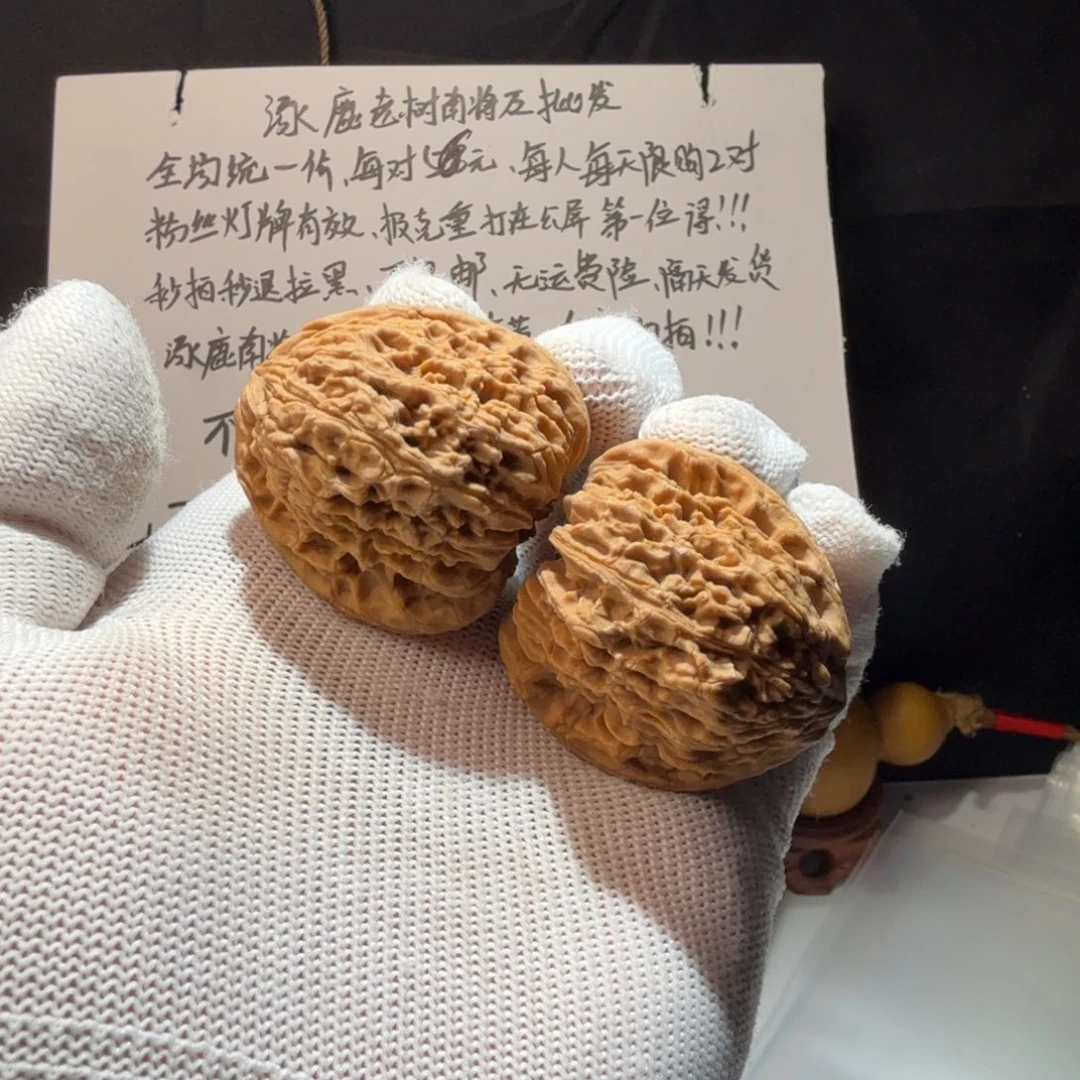 涿鹿老树南将石批发
全均统一价、每对5元、每人每天限购2对
粉丝灯牌有效、报克重打在公屏第一位得!!!
秒拍秒退拉黑、邮、无运费险、隔天发货
涿鹿南将拍!!!
不